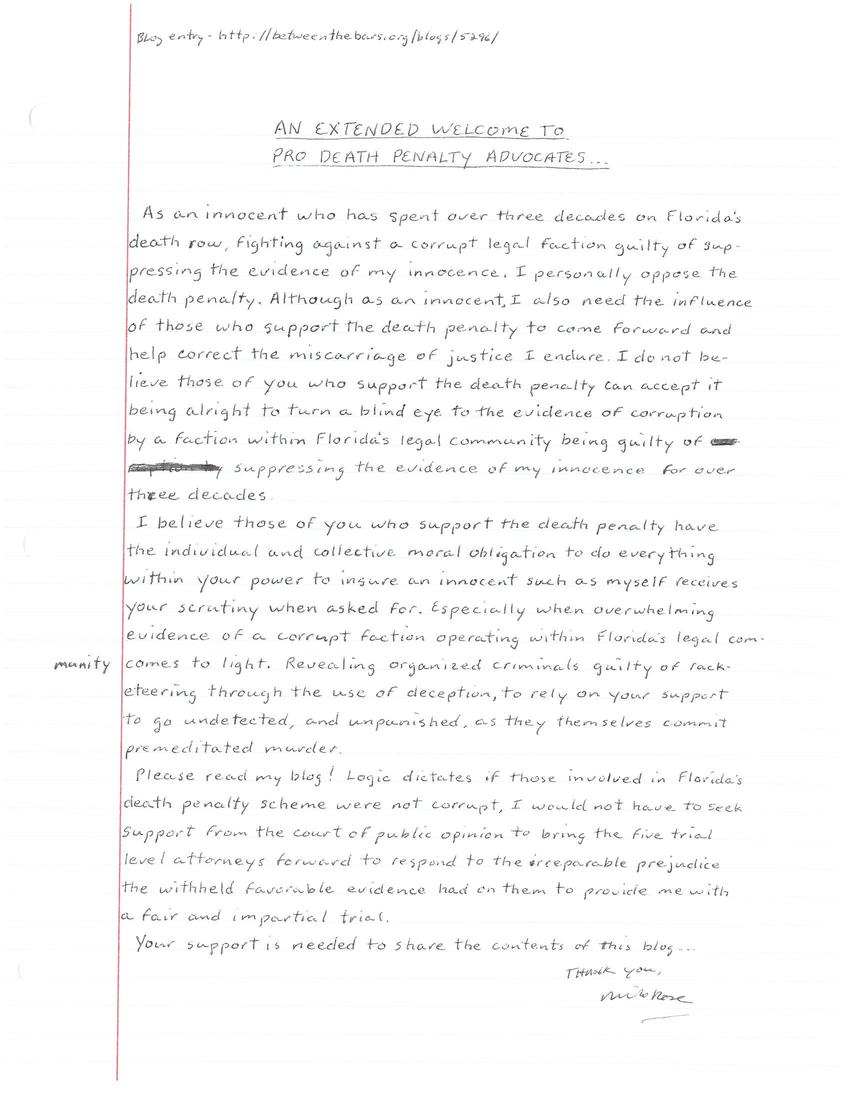 Blog entry - http://betweenthebars.org/blogs/5296/
AN EXTENDED WELCOME TO
PRO DEATH PENALTY ADVOCATES...
As an innocent who has spent over three decades on Florida's
death row, fighting against a corrupt legal faction guilty of sup-
pressing the evidence of my innocence. I personally oppose the
death penalty. Although as an innocent, I also need the influence
of those who support the death penalty to come forward and
help correct the miscarriage of justice I endure. I do not be-
lieve those of you who support the death penalty can accept it
being alright to turn a blind eye to the evidence of corruption
by a faction within Florida's legal community being guilty of
suppressing the evidence of my innocence for over
three decades.
I believe those of you who support the death penalty have
the individual and collective moral obligation to do everything
within your power to insure an innocent such as myself receives
your scrutiny when asked for. Especially when overwhelming
evidence of a corrupt faction operating within Florida's legal com-
munity comes to light. Revealing organized criminals guilty of rack-
eteering through the use of deception, to rely on your support
to go undetected, and unpunished, as they themselves commit
premeditated murder.
Please read my blog! Logic dictates if those involved in Florida's
death penalty scheme were not corrupt, I would not have to seek
support from the court of public opinion to bring the five trial
level attorneys forward to respond to the irreparable prejudice
the withheld favorable evidence had on them to provide me with
a fair and impartial trial.
Your support is needed to share the contents of this blog...
Thank you,
Milo Rose